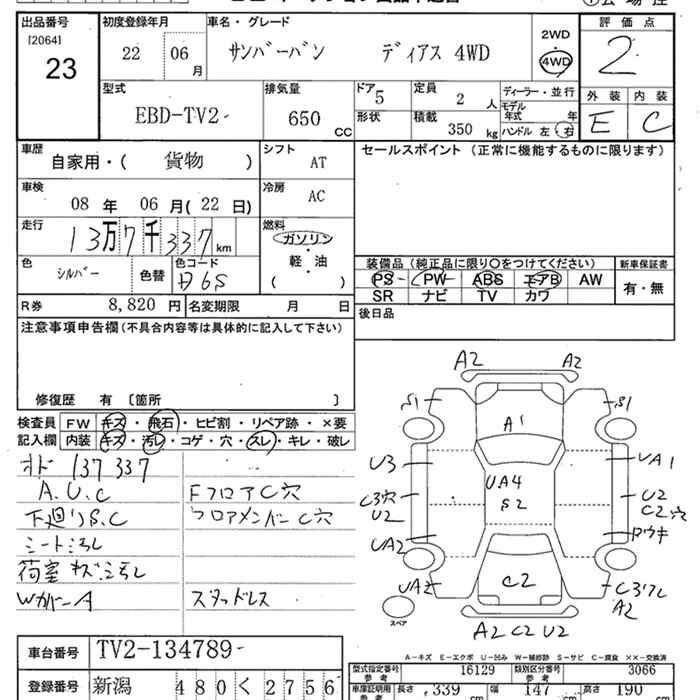 出品番号
[2064]
23
初度登録年月
22 06 月
車名・グレード
サンバーバン ディアス 4WD
2WD
4WD
評価点
2
外装 内装
E C
型式
EBD-TV2-
排気量
650 cc
ドア 5
形状
定員 2 人
積載 350 kg
ディーラー・並行
モデル年式 年
ハンドル 左・右
車歴
自家用・( 貨物 )
シフト
AT
車検
08 年 06 月(22 日)
冷房
AC
走行
13万7千337km
燃料
ガソリン
軽・油
( )
色
シルバー
色替
色コード
D6S
R券 8,820 円
名変期限 月 日
セールスポイント(正常に機能するものに限ります)
装備品(純正品に限り〇をつけてください)
新車保証書
PS PW ABS エアB AW
SR ナビ TV カワ
有・無
後日品
注意事項申告欄(不具合内容等は具体的に記入して下さい)
修復歴 有 〔箇所 〕
検査員 FW キズ・飛石・ヒビ割・リペア跡・×要
記入欄 内装 キズ・汚レ・コゲ・穴・スレ・キレ・破レ
オド 137337
A.U.C
下廻りS.C
シート汚レ
荷室キズ汚レ
Wカバー A
FフロアC穴
フロアメンバーC穴
スタッドレス
A2 A2
S1 S1
A1
U3 UA1
UA4
S2
C3穴
U2
U2
C2穴
UA2
UA2
C2
A2
A2 C2 U2
スペア
A-キズ E-エクボ U-凹み W-補修跡 S-サビ C-腐食 ××-交換済
車台番号 TV2-134789-
登録番号 新潟 480 く 2756
型式指定番号 参考 16129
類別区分番号 参考 3066
車庫証明用 参考 長さ 339 cm 幅 147 cm 高さ 190 cm